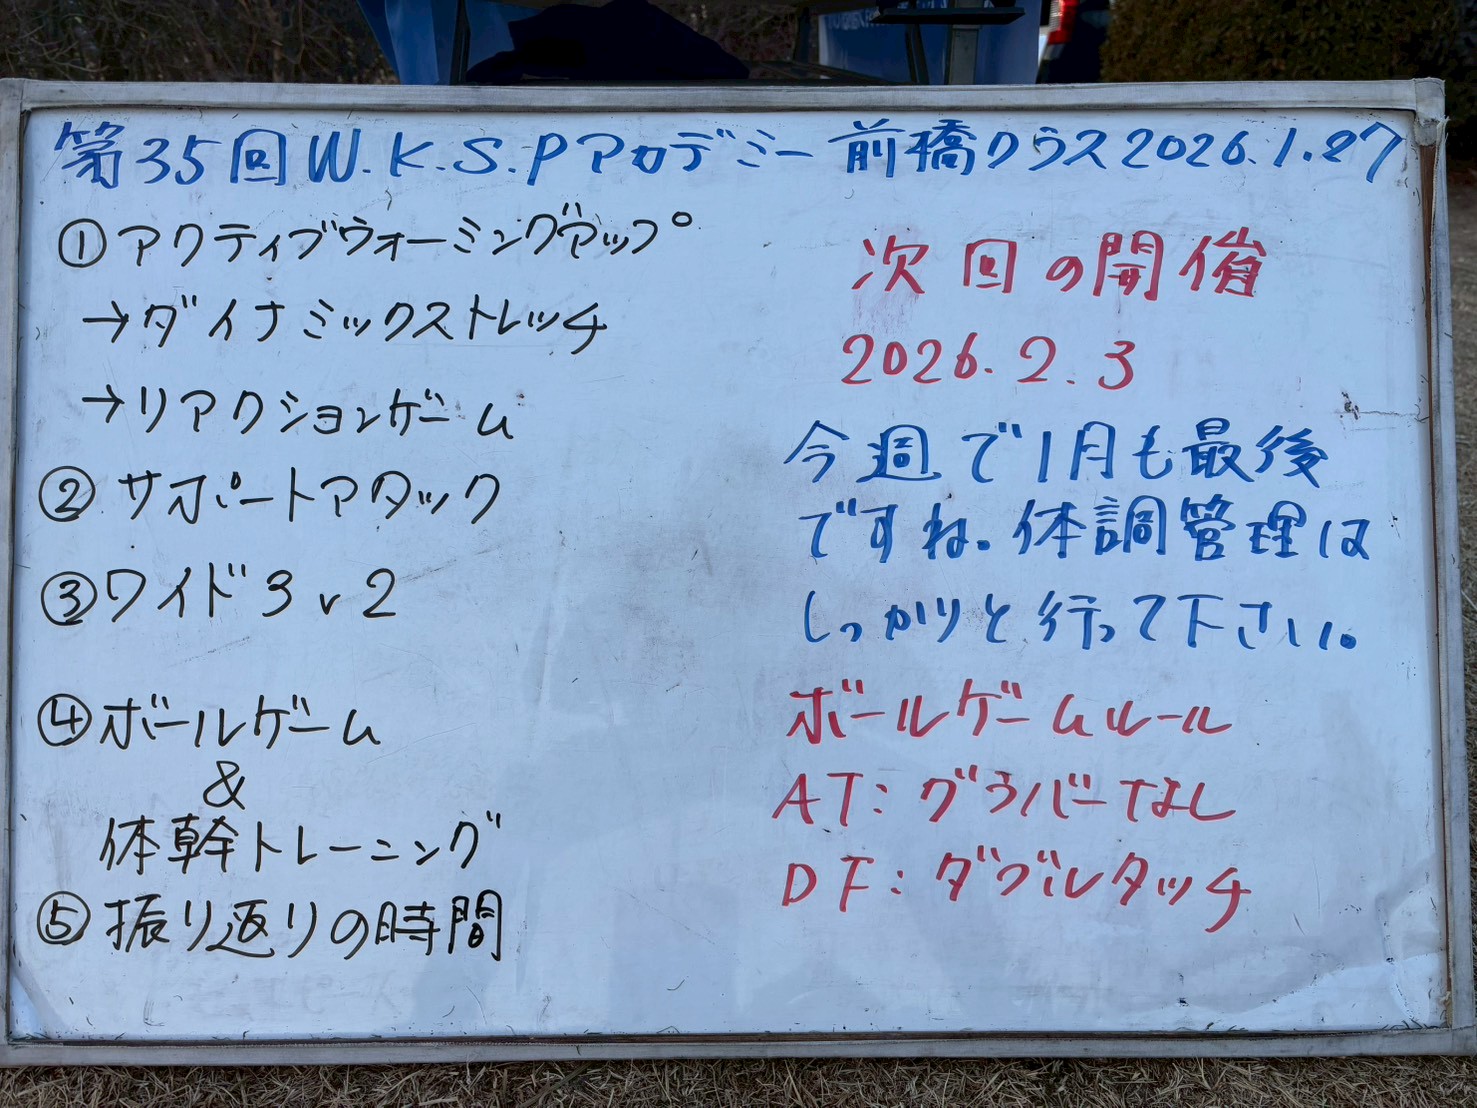 第35回W.K.S.Pアカデミー前橋クラス2026.1.27
①アクティブウォーミングアップ
→ダイナミックストレッチ
→リアクションゲーム
②サポートアタック
③ワイド3v2
④ボールゲーム
&
体幹トレーニング
⑤振り返りの時間
次回の開催
2026.2.3
今週で1月も最後
ですね。体調管理は
しっかりと行って下さい。
ボールゲームルール
AT:グラバーなし
DF:ダブルタッチ